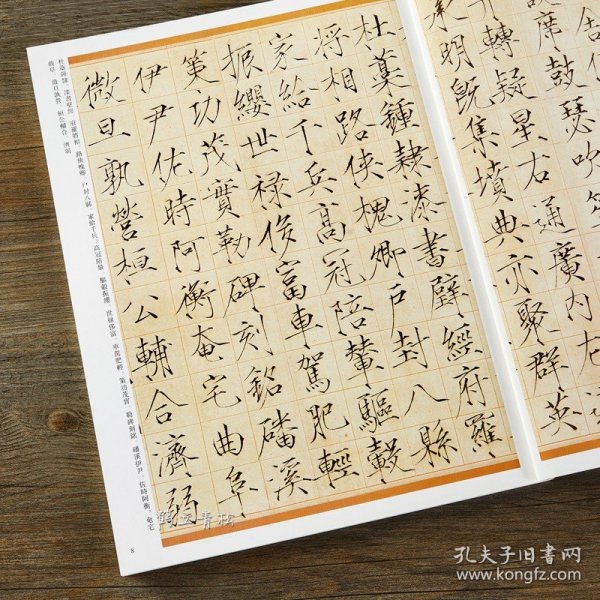 席鼓瑟吹
轉疑星右通廣内左
承明既集墳典亦聚群英
杜稾鍾隸漆書壁經府羅
將相路俠槐卿户封八縣
家給千兵高冠陪輦驅轂
振纓世祿侈富車駕肥輕
策功茂實勒碑刻銘磻溪
伊尹佐時阿衡奄宅曲阜
微旦孰營桓公輔合濟弱
杜稾鍾隸。漆書壁經。府羅將相。路俠槐卿。户封八縣。家給千兵。高冠陪輦。驅轂振纓。世祿侈富。車駕肥輕。策功茂實。勒碑刻銘。磻溪伊尹。佐時阿衡。奄宅
曲阜。微旦孰營。桓公輔合。濟弱
8
鹤立青松
孔夫子旧书网
www.kongfz.com